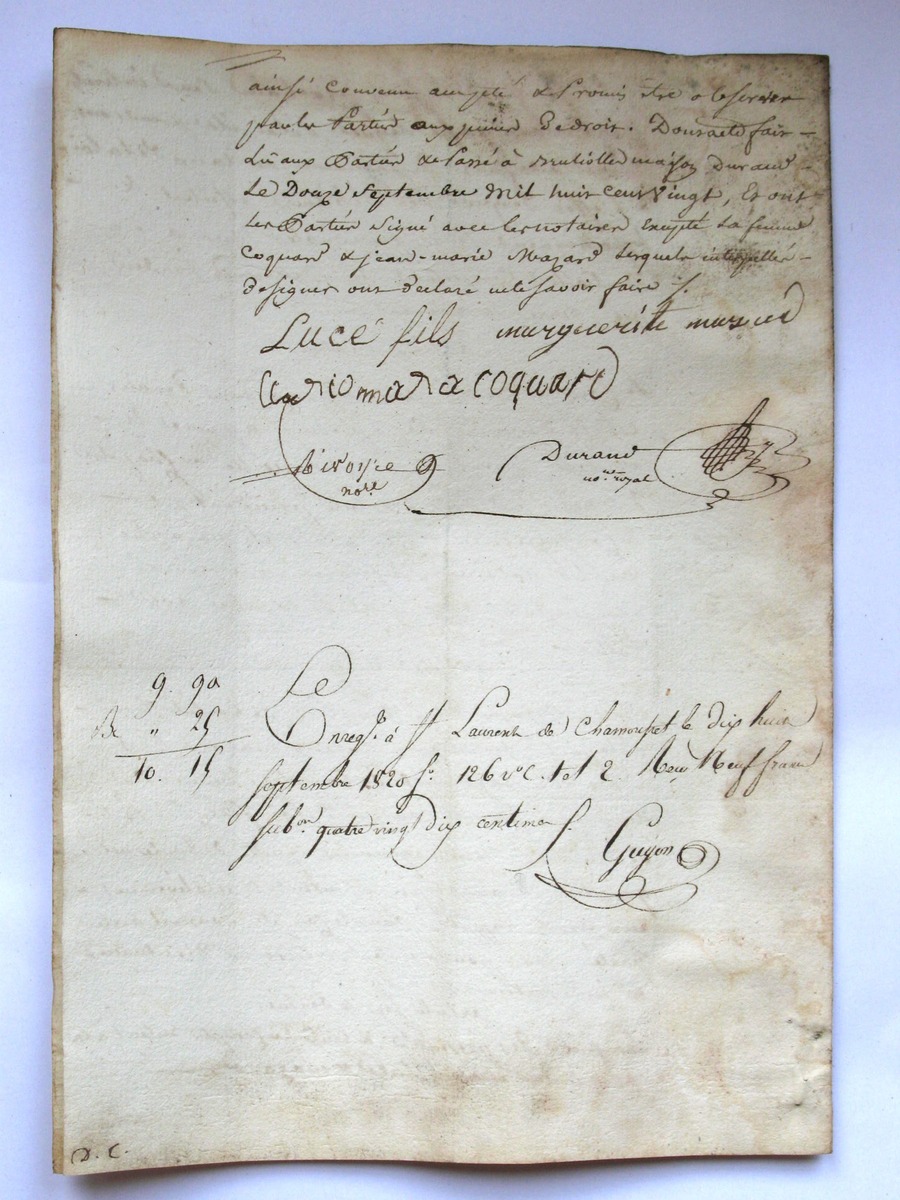 ainsi convenu accepté & Promis être observer
par les Parties aux peines De droit. Dont acte fait –
Lu aux Parties & Passé à Brullioles maison Durand –
Le Douze Septembre Mil huit cent Vingt, Et ont
les Parties Signé avec les notaires Excepté La femme
Coquard & jean-marie Mazard Lesquels interpellés –
de signer ont Déclaré ne le Savoir faire /.
Luce fils marguerite
coquard
nore
Durand
nore royal
9. 90
" 25
10. 15
Enregé. à St Laurent de Chamousset le dix huit
septembre 1820 fo. 126 vo C. 1 et 2. Reçu Neuf francs
subon quatre vingt dix centimes
Guyon
D. C.